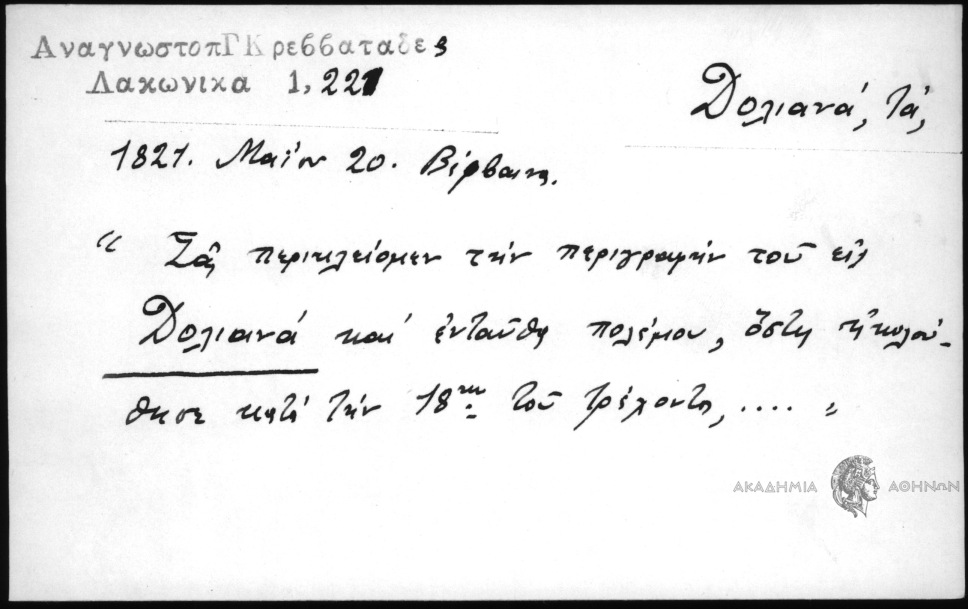 ΑναγνωστοπΓΚρεββαταδες
Λακωνικα 1, 221
Δολιανά, τά,
1821. Μαΐου 20. Βέρβαινα.
“ Σᾶς περικλείομεν τὴν περιγραφὴν τοῦ εἰς
Δολιανά καί ἐνταῦθα πολέμου, ὅστις ἠκολού-
θησε κατά τὴν 18ην τοῦ τρέχοντος, .... „
ΑΚΑΔΗΜΙΑ ΑΘΗΝΩΝ